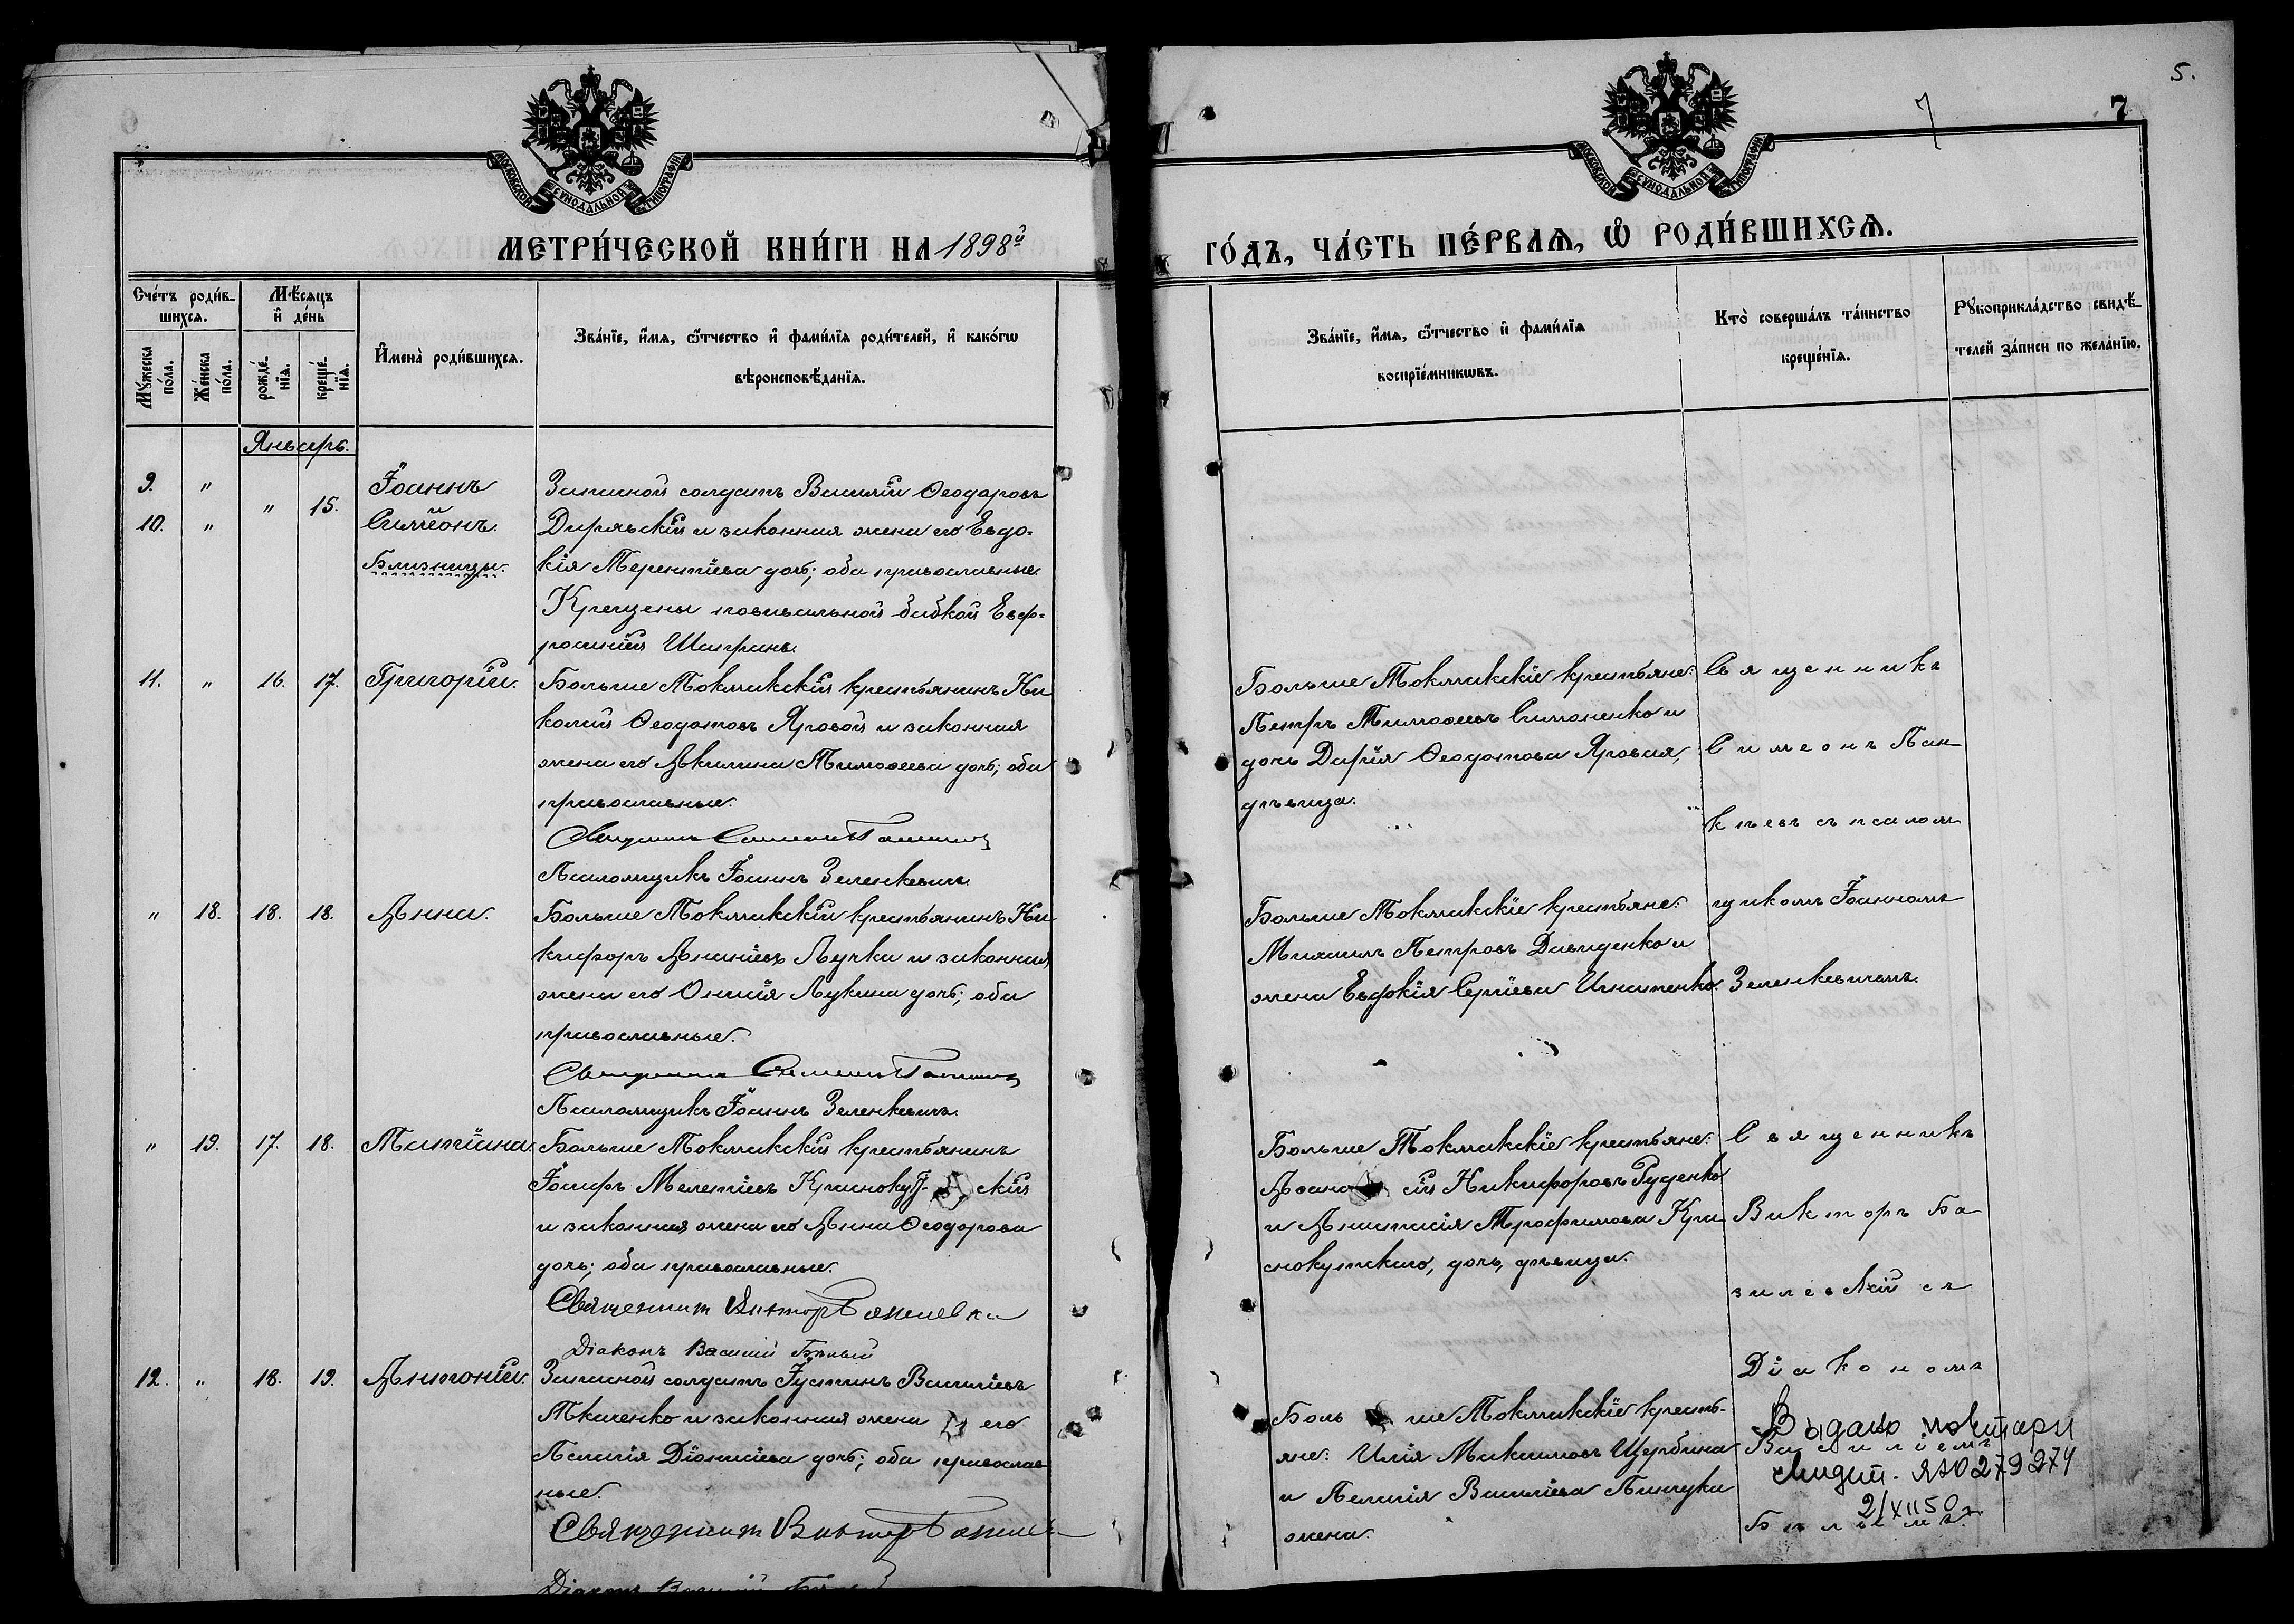 5.
7
7
МОСКОВСКОЙ СѴНОДАЛЬНОЙ ТИПОГРАФІИ
МОСКОВСКОЙ СѴНОДАЛЬНОЙ ТИПОГРАФІИ
МЕТРИ́ЧЕСКОЙ КНИ́ГИ НА 1898й
ГО́ДЪ, ЧА́СТЬ ПЕ́РВАѦ, Ѡ҆ РОДИ́ВШИХСѦ.
Сче́тъ роди́в-
шихсѧ.
Мѣ́сѧцъ
и҆ де́нь
Мꙋ́жеска
по́ла.
Же́нска
по́ла.
рожде́-
нїѧ.
креще́-
нїѧ.
И҆мена̀ роди́вшихсѧ.
Зва́нїе, и҆́мѧ, ѻ҆́тчество и҆ фами́лїѧ роди́телей, и҆ како́гѡ
вѣроисповѣ́данїѧ.
Зва́нїе, и҆́мѧ, ѻ҆́тчество и҆ фами́лїѧ
воспрїе́мникѡвъ.
Кто̀ соверша́лъ та́инство
креще́нїѧ.
Рꙋкоприкла́дство свидѣ́-
телей за́писи по жела́нїю.
Январь.
9. " " 15. Іоаннъ
10. " Симеонъ.
Близнецы.
Запасной солдатъ Василій Ѳеодоровъ
и законная жена его Евдо-
кія Терентіева дочь; оба православные.
Крещены повивальной бабкой Евф-
росиніей
11. " 16. 17. Григорій. Больше Токмакскій крестьянинъ Ни
колай Ѳеодотовъ Яровой и законная
жена его Акилина Тимоѳеева дочь; оба
православные.
Священникъ Симеонъ
Псаломщикъ Іоаннъ Зеленкевичъ.
Больше Токмакскіе крестьяне:
Петръ Тимоѳеевъ Симоненко и
дочь Дарія Ѳеодотова Яровая,
дѣвица.
Священникъ
Симеонъ Пан
кѣевъ съ псалом
щикомъ Іоанномъ
Зеленкевичемъ.
" 18. 18. 18. Анна. Больше Токмакскій крестьянинъ Ни
кифоръ Ананіевъ Лучка и законная
жена его Онисія Лукина дочь; оба
православные.
Священникъ Симеонъ
Псаломщикъ Іоаннъ Зеленкевичъ.
Больше Токмакскіе крестьяне:
Михаилъ Петровъ Давиденко и
жена Евдокія Сергіева Игнатенко.
" 19. 17. 18. Татіана. Больше Токмакскій крестьянинъ
Іосифъ Мелетіевъ Краснокут скій
и законная жена его Анна Ѳеодорова
дочь; оба православные.
Священникъ Викторъ Базилевскій
Діаконъ Василій Бѣлый
Больше Токмакскіе крестьяне:
Аѳана сій Никифоровъ Руденко
и Анастасія Трофимова Кра
снокутскаго, дочь, дѣвица.
Священникъ
Викторъ Ба
зилевскій съ
Діакономъ
Василіемъ
Бѣлымъ.
12. " 18. 19. Антоній. Запасной солдатъ Іустинъ Василіевъ
Ткаченко и законная жена его
Пелагія Діонисіева дочь; оба православ
ные.
Священникъ Викторъ
Діаконъ Василій
Боль ше Токмакскіе кресть-
яне: Илія Максимовъ Щербина
и Пелагія Василіева Пинчука
жена.
Видано повтори
свидит. ЯЮ 279274
2/XII 50 г.